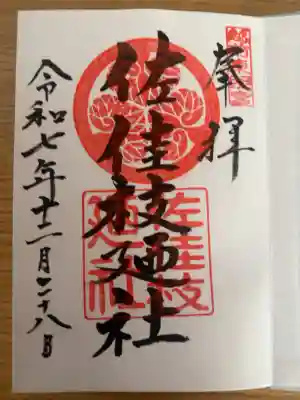 奉拝
佐佳枝廼社
佐佳枝
廼社
令和七年十二月二十八日